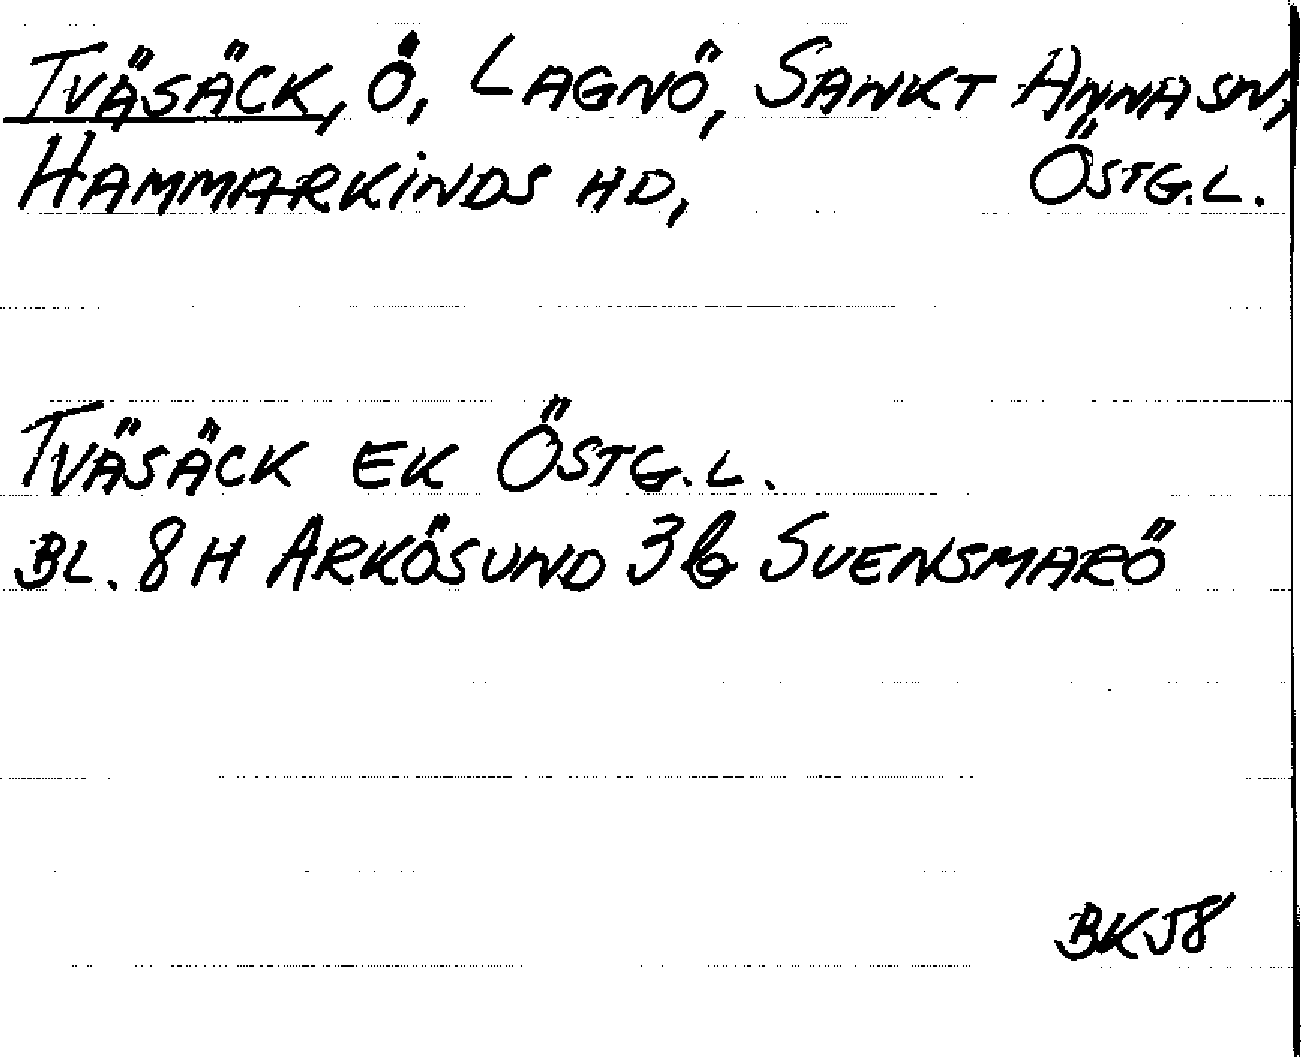 TVÄSÄCK, Ö, LAGNÖ, SANKT ANNA SN,
HAMMARKINDS HD, ÖSTG.L.
TVÄSÄCK EK ÖSTG.L.
BL. 8H ARKÖSUND 3b SVENSMARÖ
BK58